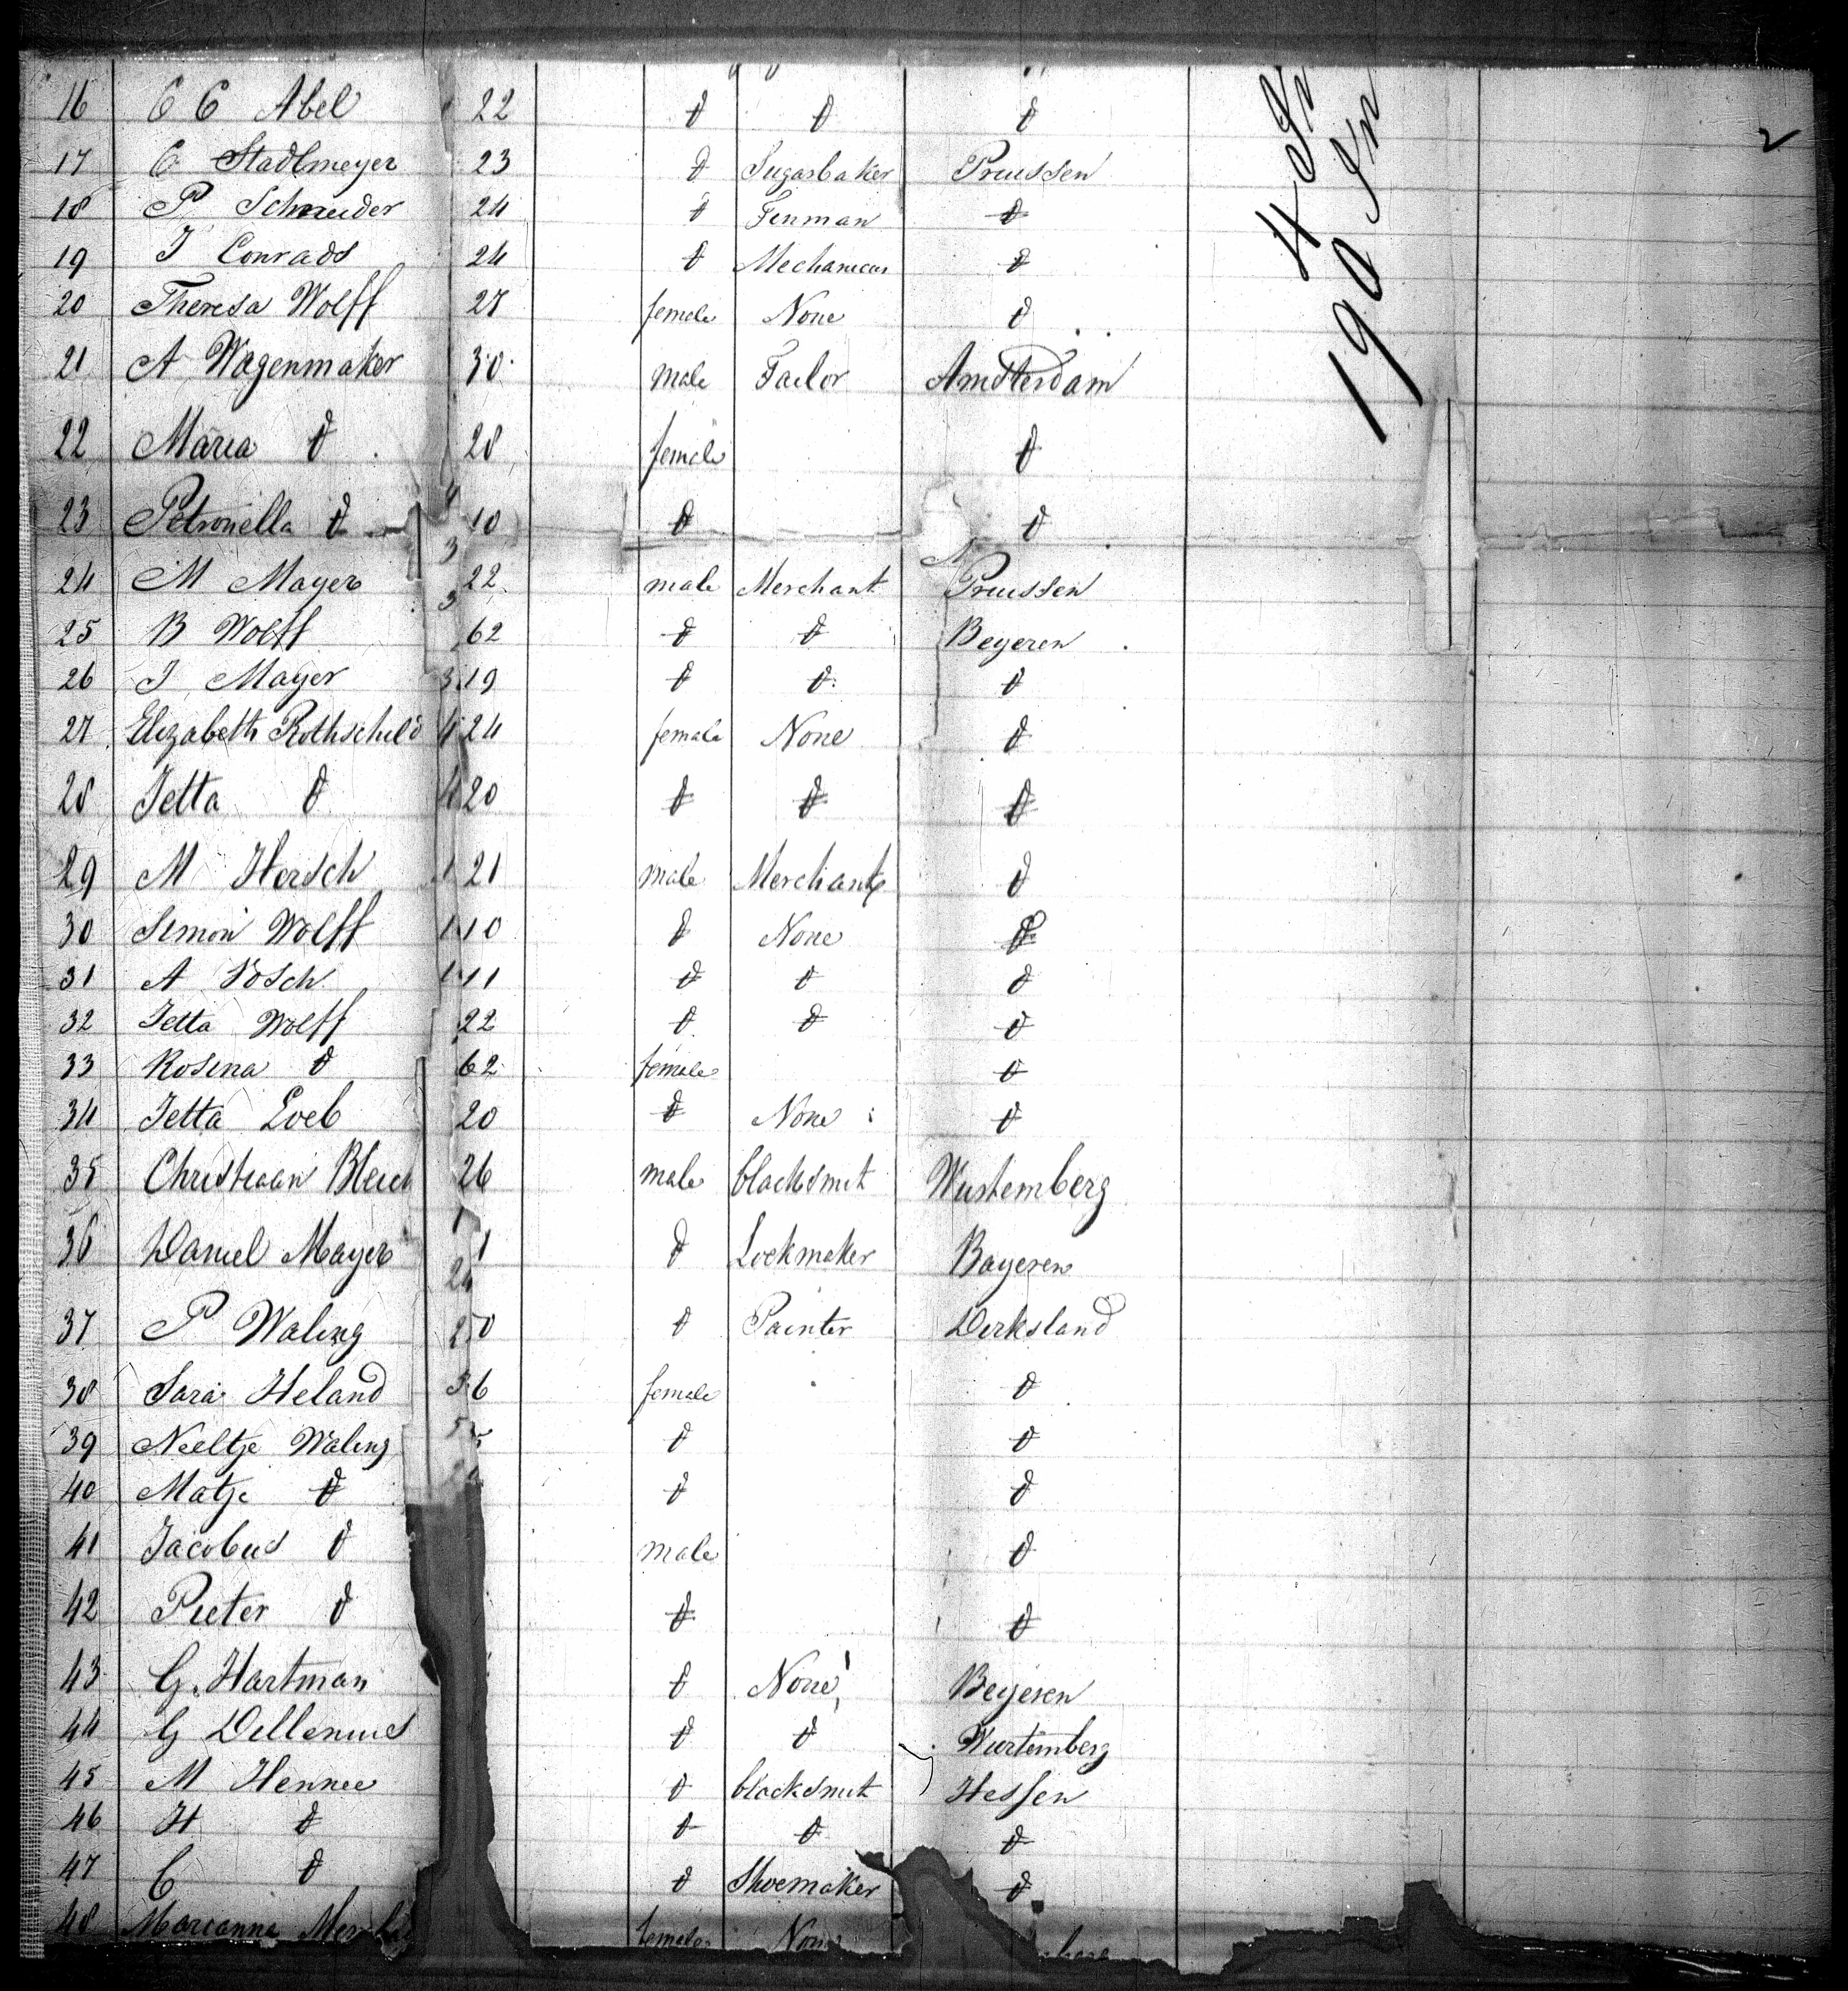 16 C C Abel 22 đ đ đ
17 C Stadlmeyer 23 đ Sugarbaker Prussen
18 P Schneider 24 đ đ
19 J Conrads 24 đ Mechanicus đ
20 Theresa Wolff 27 female None đ
21 A Wagenmaker 30 male Tailor Amsterdam
22 Maria đ 28 female đ
23 Petronella đ 10 đ đ
24 M Mayer 22 male Merchant Prussen
25 B Wolff 62 đ đ Beyeren
26 J Mayer 19 đ đ đ
27 Elizabeth Rothschild 24 female None đ
28 Jetta đ 20 đ đ đ
29 M Hersch 21 male Merchant đ
30 Simon Wolff 10 đ None đ
31 A 11 đ đ đ
32 Jetta Wolff 22 đ đ đ
33 Rosina đ 62 female đ
34 Jetta Loeb 20 đ None đ
35 Christiaan 26 male blacksmit Wurtemberg
36 Daniel Mayer đ Lockmaker Bayeren
37 P Waling đ Painter Dirksland
38 Sara Heland 36 female đ
39 Neeltje Waling đ đ
40 Matje đ đ đ
41 Jacobus đ male đ
42 Pieter đ đ đ
43 G. Hartman đ None Beyeren
44 G Dillenius đ đ Wurtemberg
45 M Hennee đ blacksmit Hessen
46 H đ đ đ đ
47 C đ đ Shoemaker đ
48 Marianna female None
4
190
2